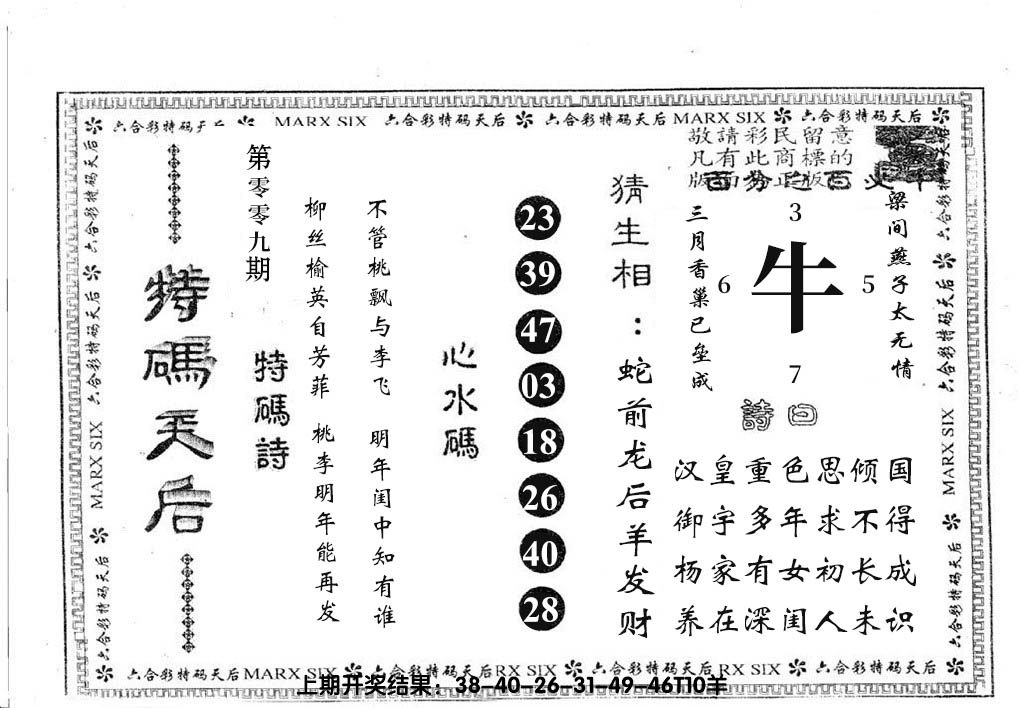 六合彩特码 MARX SIX 六合彩特码天后 六合彩特码天后 MARX SIX 六合彩特码天后
敬請彩民留意
凡有此商標的
版面为正版
六合彩特码天后
六合彩特码天后
MARX SIX
六合彩特码天后
特碼天后
第零零九期
特碼詩
柳丝榆英自芳菲 桃李明年能再发
不管桃飘与李飞 明年闺中知有谁
心水碼
23
39
47
03
18
26
40
28
猜生相：蛇前龙后羊发财
三月香巢已垒成
3
6 牛 5
7
梁间燕子太无情
詩曰
汉皇重色思倾国
御宇多年求不得
杨家有女初长成
养在深闺人未识
六合彩特码天后
六合彩特码天后
MARX SIX
六合彩特码天后
六合彩特码天后 MARX SIX 六合彩特码天后 RX SIX 六合彩特码天后 RX SIX 六合彩特码天后
上期开奖结果：38-40-26-31-49-46T10羊